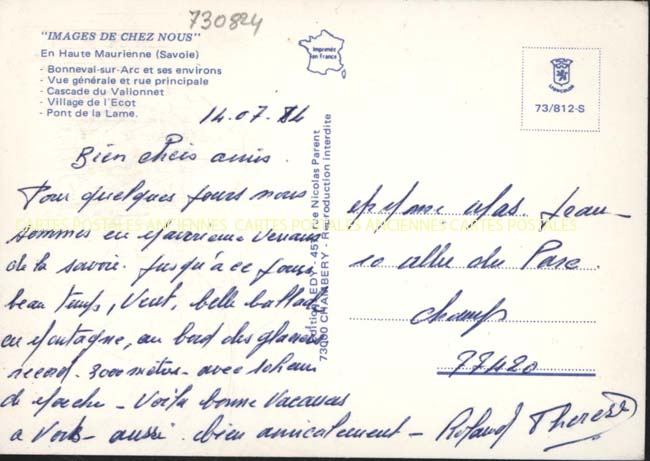 730824
"IMAGES DE CHEZ NOUS"
En Haute Maurienne (Savoie)
- Bonneval-sur-Arc et ses environs
- Vue générale et rue principale
- Cascade du Vallonnet
- Village de l'Ecot
- Pont de la Lame.
Imprimée
en France
73/812-S
14.07.84
Bien chers amis.
Pour quelques jours nous
sommes en Maurienne Venant
de la Savoie. Jusqu'à ce jour
beau temps, Vent, belle ballade
en Montagne, au bord des glaciers
record. 3000 mètres - avec
de Marche - Voilà bonne Vacances
a Vous - aussi. bien amicalement - Roland Thérèse
Editions EDY - 457, rue Nicolas Parent
73000 CHAMBERY - Reproduction interdite
Mme Mas. Jean
10 allée du Parc
Champs
77420
CARTES POSTALES ANCIENNES CARTES POSTALES ANCIENNES CARTES POSTALES